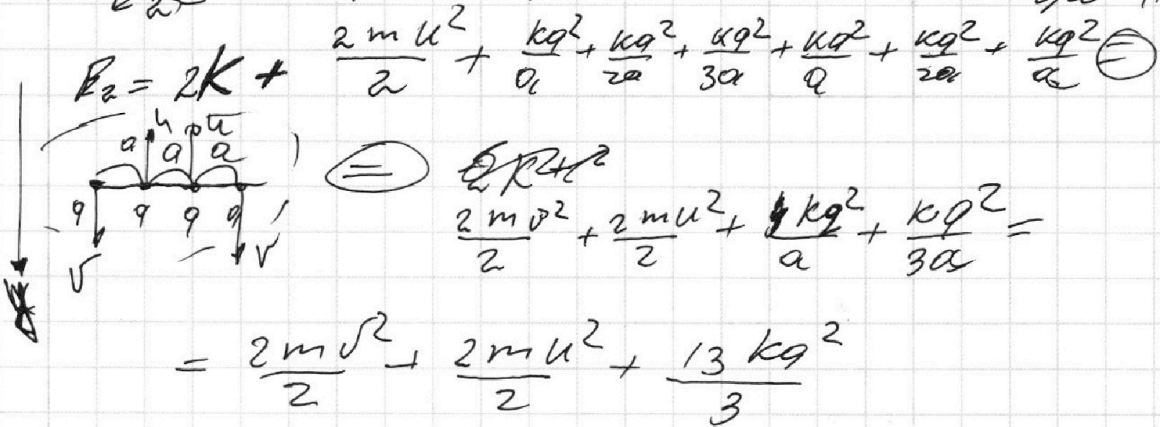 E₂ = 2K + \frac{2mu^2}{2} + \frac{kq^2}{a} + \frac{kq^2}{2a} + \frac{kq^2}{3a} + \frac{kq^2}{a} + \frac{kq^2}{2a} + \frac{kq^2}{a} =
a u u
a a
q q q q
v v
= \frac{2mv^2}{2} + \frac{2mu^2}{2} + \frac{4kq^2}{a} + \frac{kq^2}{3a} =
= \frac{2mv^2}{2} + \frac{2mu^2}{2} + \frac{13kq^2}{3}